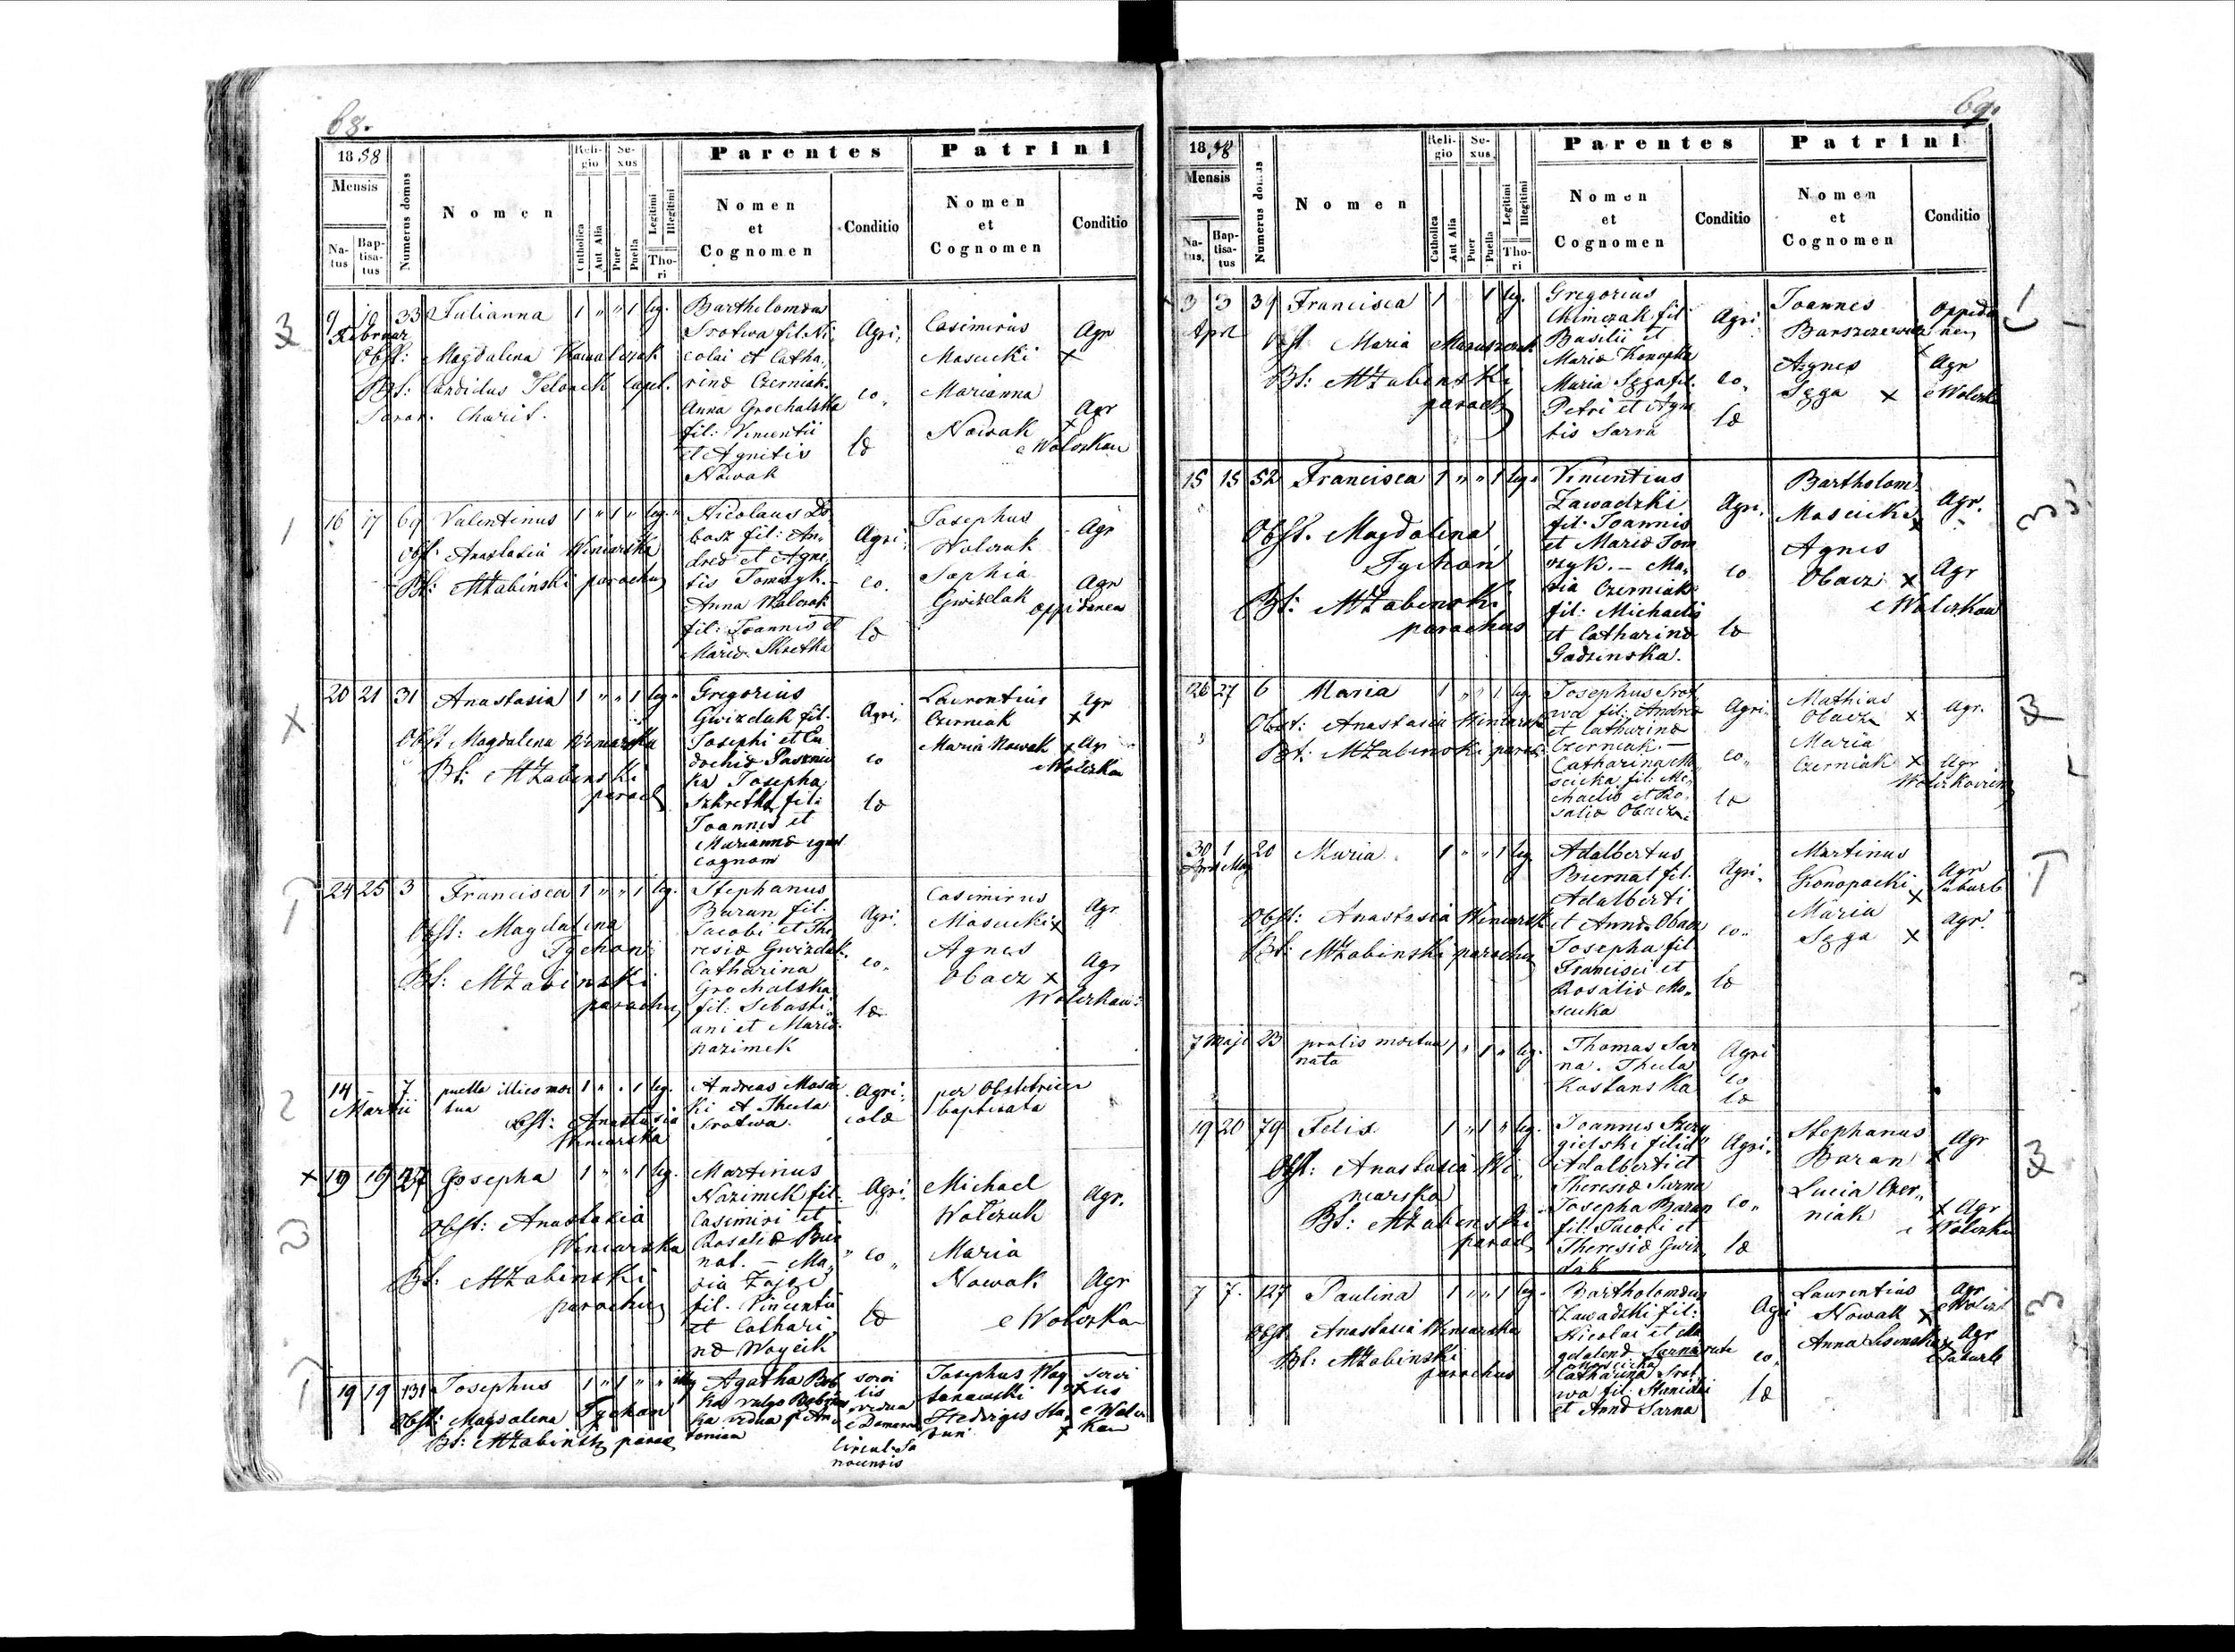 68.
1858
Mensis
Natus
Baptisatus
Numerus domus
Nomen
Religio
Catholica
Aut Alia
Sexus
Puer
Puella
Legitimi
Illegitimi
Thori
Parentes
Nomen
et
Cognomen
Conditio
Patrini
Nomen
et
Cognomen
Conditio
9 10 33 Julianna 1 " " 1 leg.
Februar
Obst: Magdalena Kowalczak
Bt: Candidus Capel.
Bartholomæus
Srotwa fil. Ni
colai et Catha,
rinæ Czerniak.
Anna Grochalska
fil: Vincentii
et Agnitis
Nowak
Agri,
co,
læ
Casimirus
Moscicki
Marianna
Nowak
Agr
x
Agr
x
e Wolezkau
16 17 69 Valentinus 1 " 1 " leg.
Obst. Anastasia Winiarska
Bt: MŻabinski parochus
Nicolaus
fil: An,
dreæ et Agne,
tis Tomczyk.
Anna Wolczak
fil: Joannis et
Mariæ Skretka
Agri,
co.
læ
Josephus
Wolczak
Sophia
Gwizdak
Agr
Agr
oppidanea
20 21 31 Anastasia 1 " " 1 leg.
Obst Magdalena Winiarska
Bt: MŻabinski
paroch
Gregorius
Gwizdak fil.
Josephi et Eu
dochiæ
Josepha
Szkretka fil:
Joannis et
Mariannæ
cognom
Agri,
co
læ
Laurentius
Czerniak
Maria Nowak
Agr
x
x Agr
24 25 3 Francisca 1 " " 1 leg.
Obst: Magdalena
Tychan
Bt: MŻabinski
parochus
Stephanus
Baran fil.
Jacobi et The
resiæ Gwizdak.
Catharina
Grochalska
fil: Sebasti
ani et Mariæ
Nazimek
Agri.
co,
læ
Casimirus
Moscicki x
Agnes
Obacz x
Agr
Agr
Wolezkau:
14 - 7 puella illico mor 1 " . 1 leg.
Martii tua
Obst: Anastasia
Winiarska
Andreas Mosci
ki et Thecla
Srotwa.
Agri,
colæ
per Obstetricem
baptisata
x 19 19 127 Josepha 1 " " 1 leg.
Obst: Anastasia
Winiarska
Bt: MŻabinski
parochus
Martinus
Nazimek fil.
Casimiri et
Rosaliæ Bier
nat. – Ma,
ria Zając
fil. Vincentii
et Cathari,
næ Woycik
Agri.
co,
læ
Michael
Wolczak
Maria
Nowak
Agr.
Agr
e Wolezka
19 19 131 Josephus 1 " 1 " " illeg
Obst: Magdalena Tychan
Bt: MŻabinsky paroc
Agatha Bob
ka vulgo
ka vidua
tonian
servi
lis
vidua
Circul. Sa
nocensis
Josephus Woy
tanowski
Hedvigis
x
servi
lis
e Wolez
x kau
69.
1858
Mensis
Natus.
Baptisatus
Numerus domus
Nomen
Religio
Catholica
Aut Alia
Sexus
Puer
Puella
Legitimi
Illegitimi
Thori
Parentes
Nomen
et
Cognomen
Conditio
Patrini
Nomen
et
Cognomen
Conditio
3 3 39 Francisca 1 1 leg.
April
Obst. Maria
Bt: MŻabinski
paroch
Gregorius
fil
Basilii et
Mariæ Konopka
Maria Sęga fil.
Petri et Agne
tis Sarna
Agri
co,
læ
Joannes
Agnes
Sęga x
x
Agr
e Wolezka
15 15 52 Francisca 1 " " 1 leg.
Obst. Magdalena
Tychan
Bt: MŻabinski
parochus
Vincentius
Zawadzki
fil: Joannis
et Mariæ Tom
czyk. – Ma,
ria Czerniak
fil: Michaelis
et Catharinæ
Gadzinska.
Agri,
co
læ
Bartholom
Moscicki x
Agnes
Obacz x
Agr.
Agr
e Wolezkau
26 27 6 Maria 1 " " 1 leg.
Obst: Anastasia Winiarska
Bt: MŻabinski paroch
Josephus Srot,
wa fil: Andreæ
et Catharinæ
Czerniak. –
Catharina Mo
scicka fil: Mi,
chaelis et Ro,
saliæ Obacz.
Agri.
co,
læ
Mathias
Obacz x
Maria
Czerniak x
Agr.
Agr
30 1 20 Maria 1 " " 1 leg
April Maj
Obst: Anastasia Winiarsk
Bt: MŻabinski parochus
Adalbertus
Biernat fil.
Adalberti
et Annæ Obacz
Josepha fil.
Francisci et
Rosaliæ Mo,
scicka
Agri.
co,
læ
Martinus
Konopacki x
Maria
Sęga x
Agr
Suburb
Agr.
7 Maji 23 prolis mortua 1 " 1 " leg.
nata
Thomas Sar
na. Thecla
Kostanska
Agri
co
læ
19 20 79 Felix 1 " 1 " leg.
Obst: Anastasia Wi,
niarska
Bt: MŻabinski
paroch
Joannes Szczy
gielski filius
Adalberti et
Theresiæ Sarna
Josepha Baran
fil: Jacobi et
Theresiæ Gwiz
dak
Agri.
co,
læ
Stephanus
Baran x
Lucia Czer,
niak
Agr
x Agr
e Wolezka
7 7. 127 Paulina 1 " " 1 leg.
Obst Anastasia Winiarska
Bt: MŻabinski
parochus
Bartholomæus
Zawadzki fil:
Nicolai et Ma
gdalenæ Sarna
Moscicka
Catharina Srot
wa fil. Stanislai
et Annæ Sarna
Agri
co,
læ
Laurentius
Nowak x
Anna
Agr
Agr
Suburb